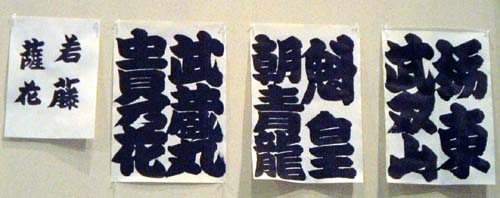 栃東
武双山
魁皇
朝青龍
武蔵丸
貴乃花
若藤
薩花